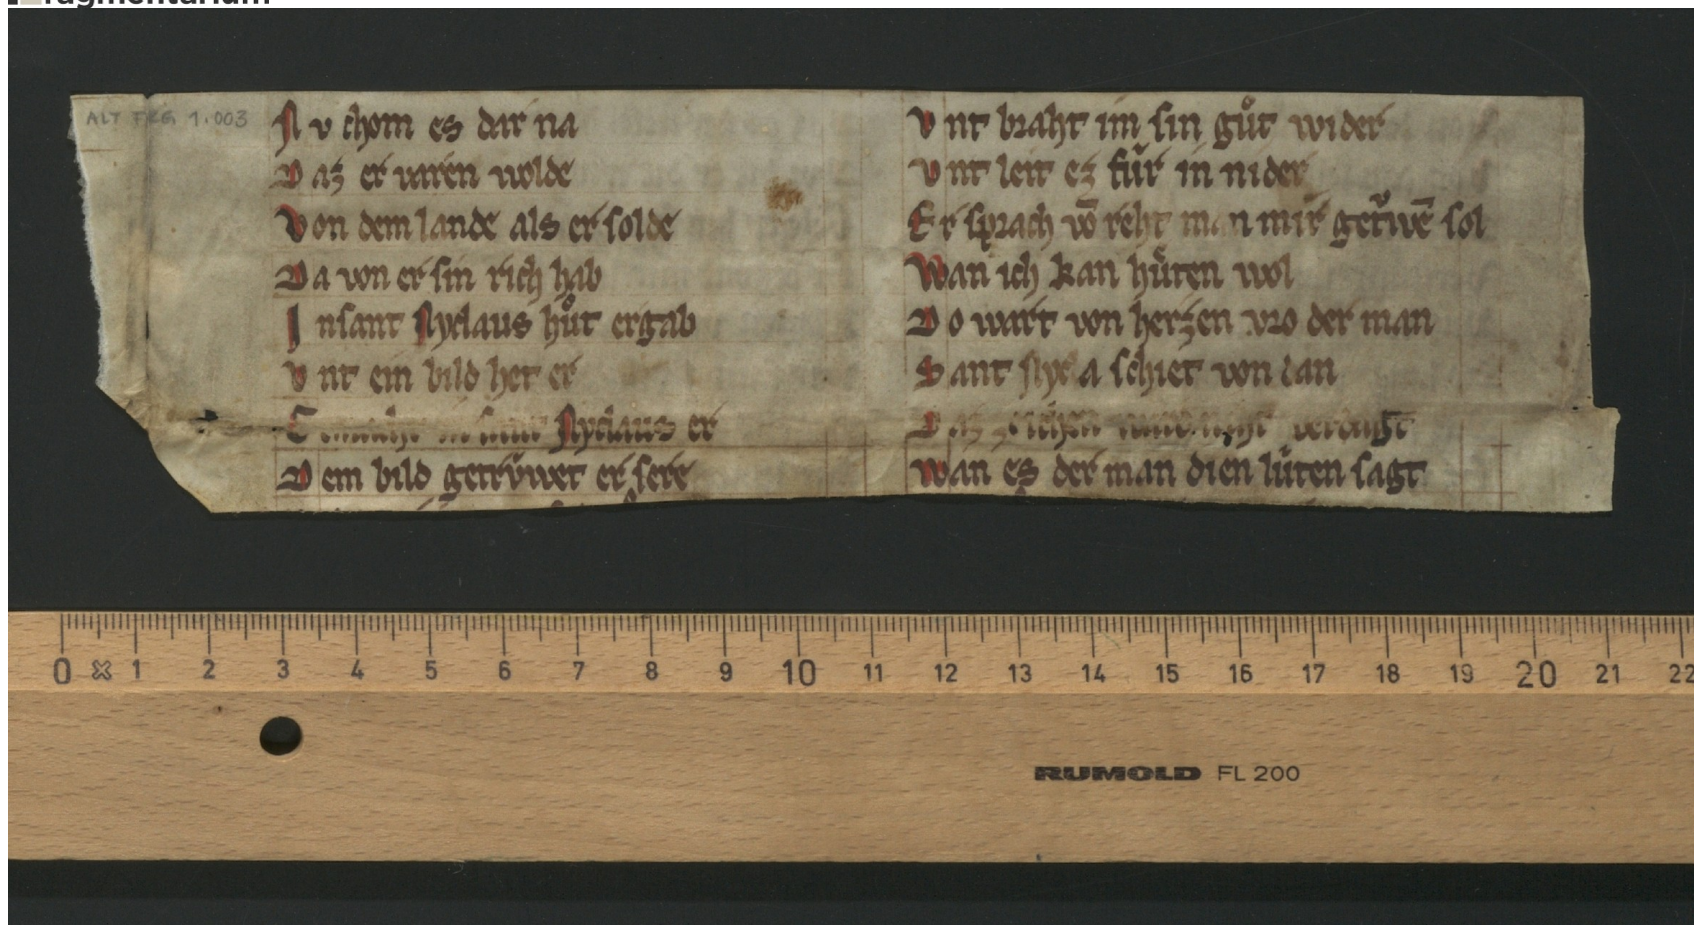 ragmentarium
ALT FRG 1.003
N v chom es dar na
D az er varen wolde
V on dem lande als er solde
D a von er sin rich hab
I n sant Nyclaus hůt ergab
V nt ein bild het er
Nyclaus er
D em bild getrv̈wet er sere
V nt braht im sin gůt wider
V nt leit ez fu̍r in nider
E r sprach vō reht man mir getrv̈wē sol
W an ich kan hu̍ten wol
D o wart von herzen vro der man
S ant Nyc a schiet von dan
D az zeichen verdagt
W an es der man dien lu̍ten sagt
0 1 2 3 4 5 6 7 8 9 10 11 12 13 14 15 16 17 18 19 20 21 22
RUMOLD FL 200